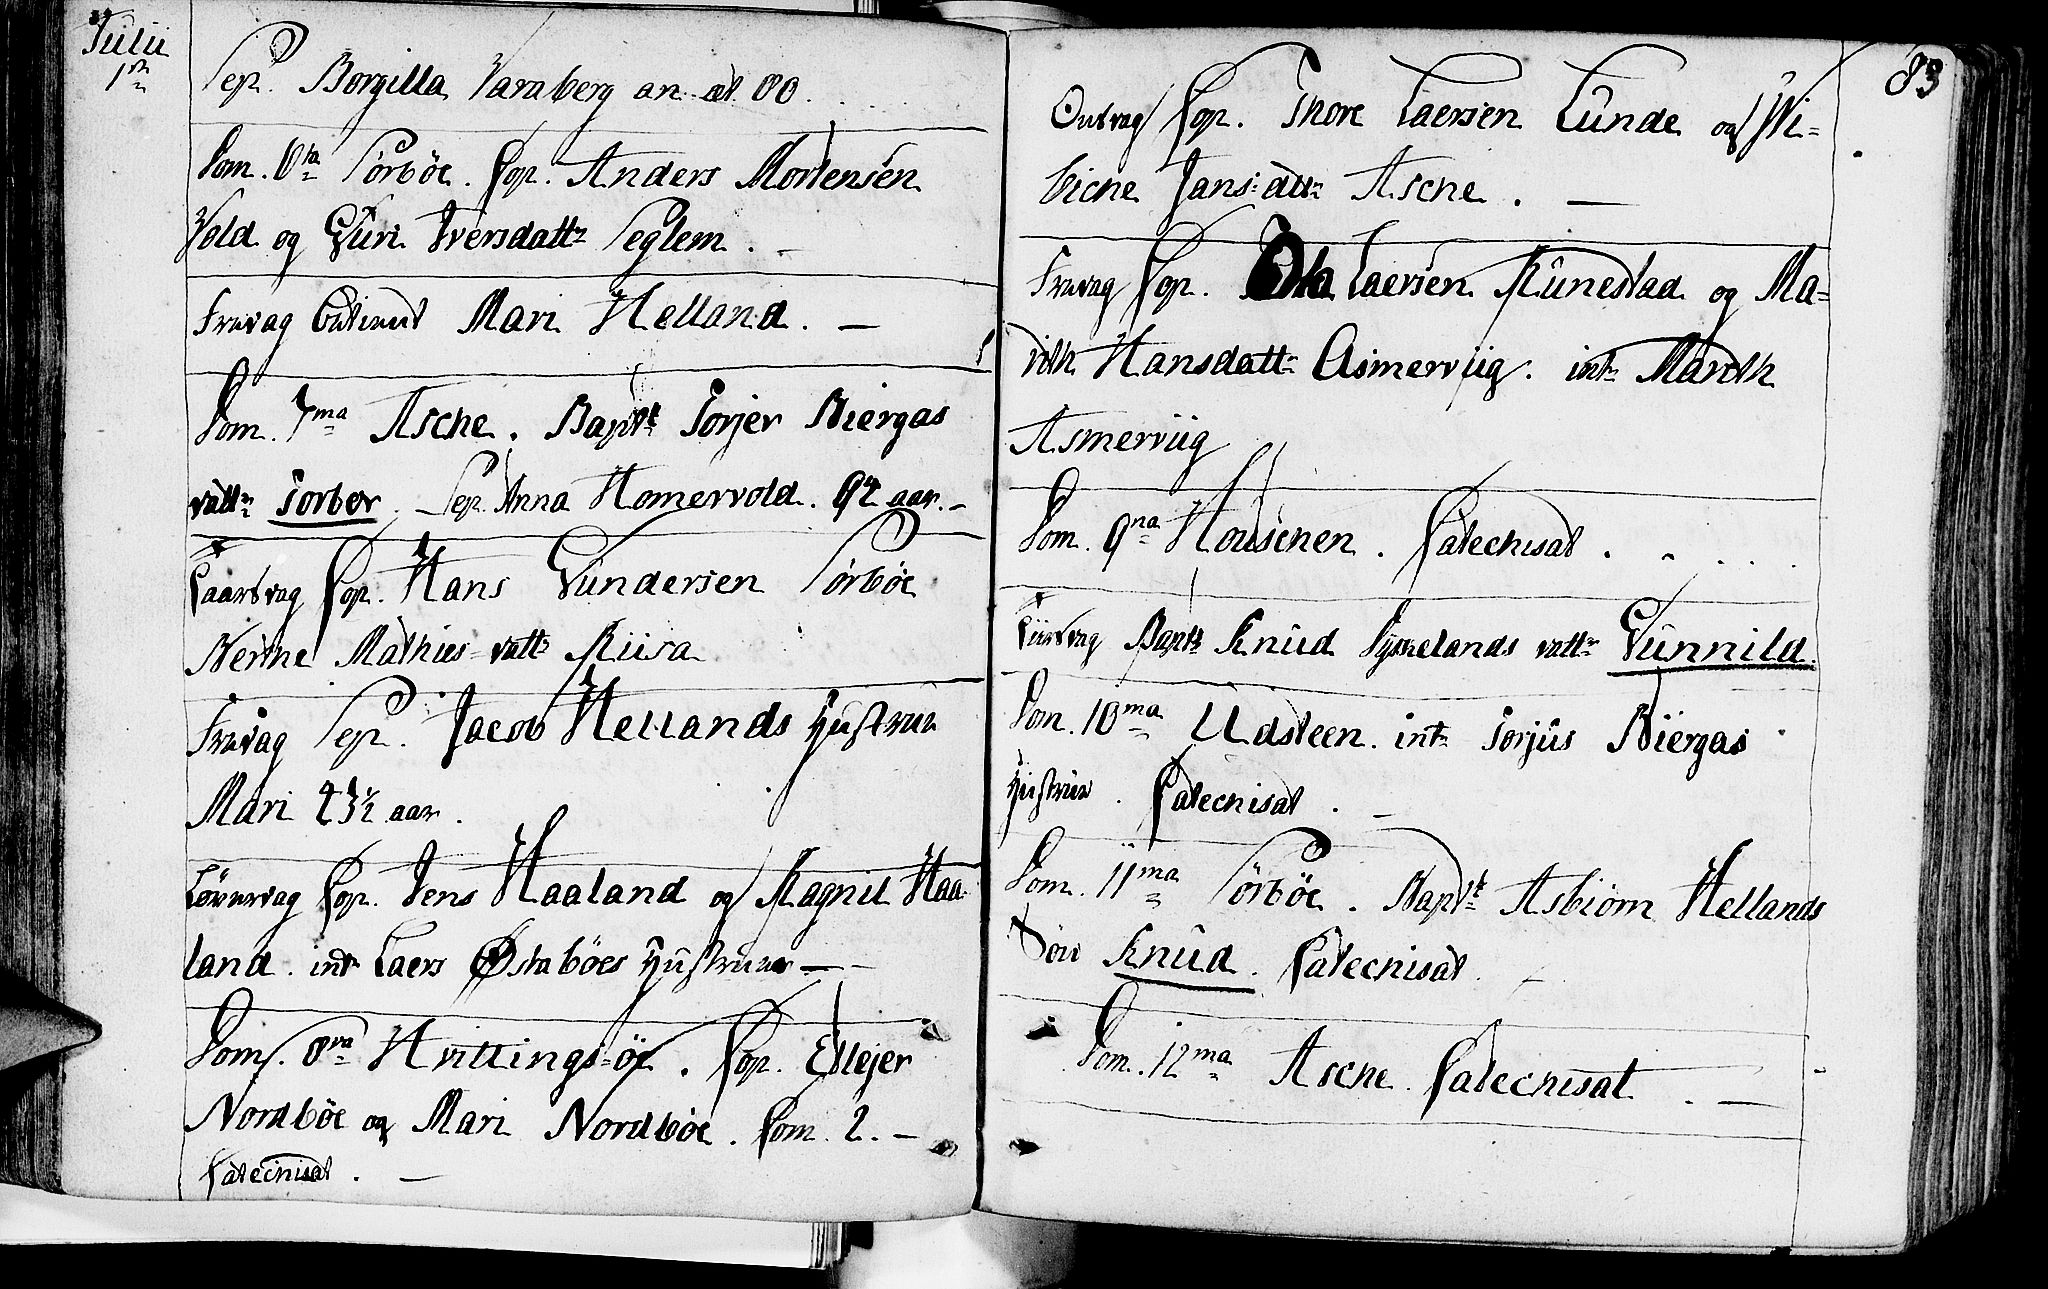 Julii
1ste
Sep. Borgilla Varaberg an. æt. 80.
Dom. 6ta Sörböe. Cop. Anders Mortensen
Vold og Guri Iversdattr Seglem. -
Fredag Mari Helland. -
Dom. 7ma Asche. Bapt Torjer Biergas
dattr Torbor. - Sep. Anna Homervold. 94 aar. -
Cop. Hans Gundersen Sörböe
Mathies-dattr Riisa
Fredag Sep. Jacob Hellands Hustrue
Mari 43½ aar.
Löverdag Cop. Jens Haaland og Ragnil Haa-
land. intr Laers Østaböes Hustrue -
Dom. 8va Hvittings-öe. Cop. Ellejer
Nordböe og Mari Nordböe. Com. 2. -
Catechisat. -
83
Onsdag Cop. Thore Laersen Lunde og Wi-
biche Jans-dttr Asche. -
Fredag Cop. Ola Laersen Runestad og Ma-
rith Hansdattr Asmerviig. intr Marith
Asmerviig
Dom. 9na Houschen. Catechisat.
Tiirsdag Bapt Knud dattr Gunnild.
Dom. 10ma Udsteen. intr Torjus Biergas
Hustrue. Catechisat. -
Dom. 11ma Sörböe. Bapt Asbiörn Hellands
Sön Knud. Catechisat. -
Dom. 12ma Asche. Catechisat. -